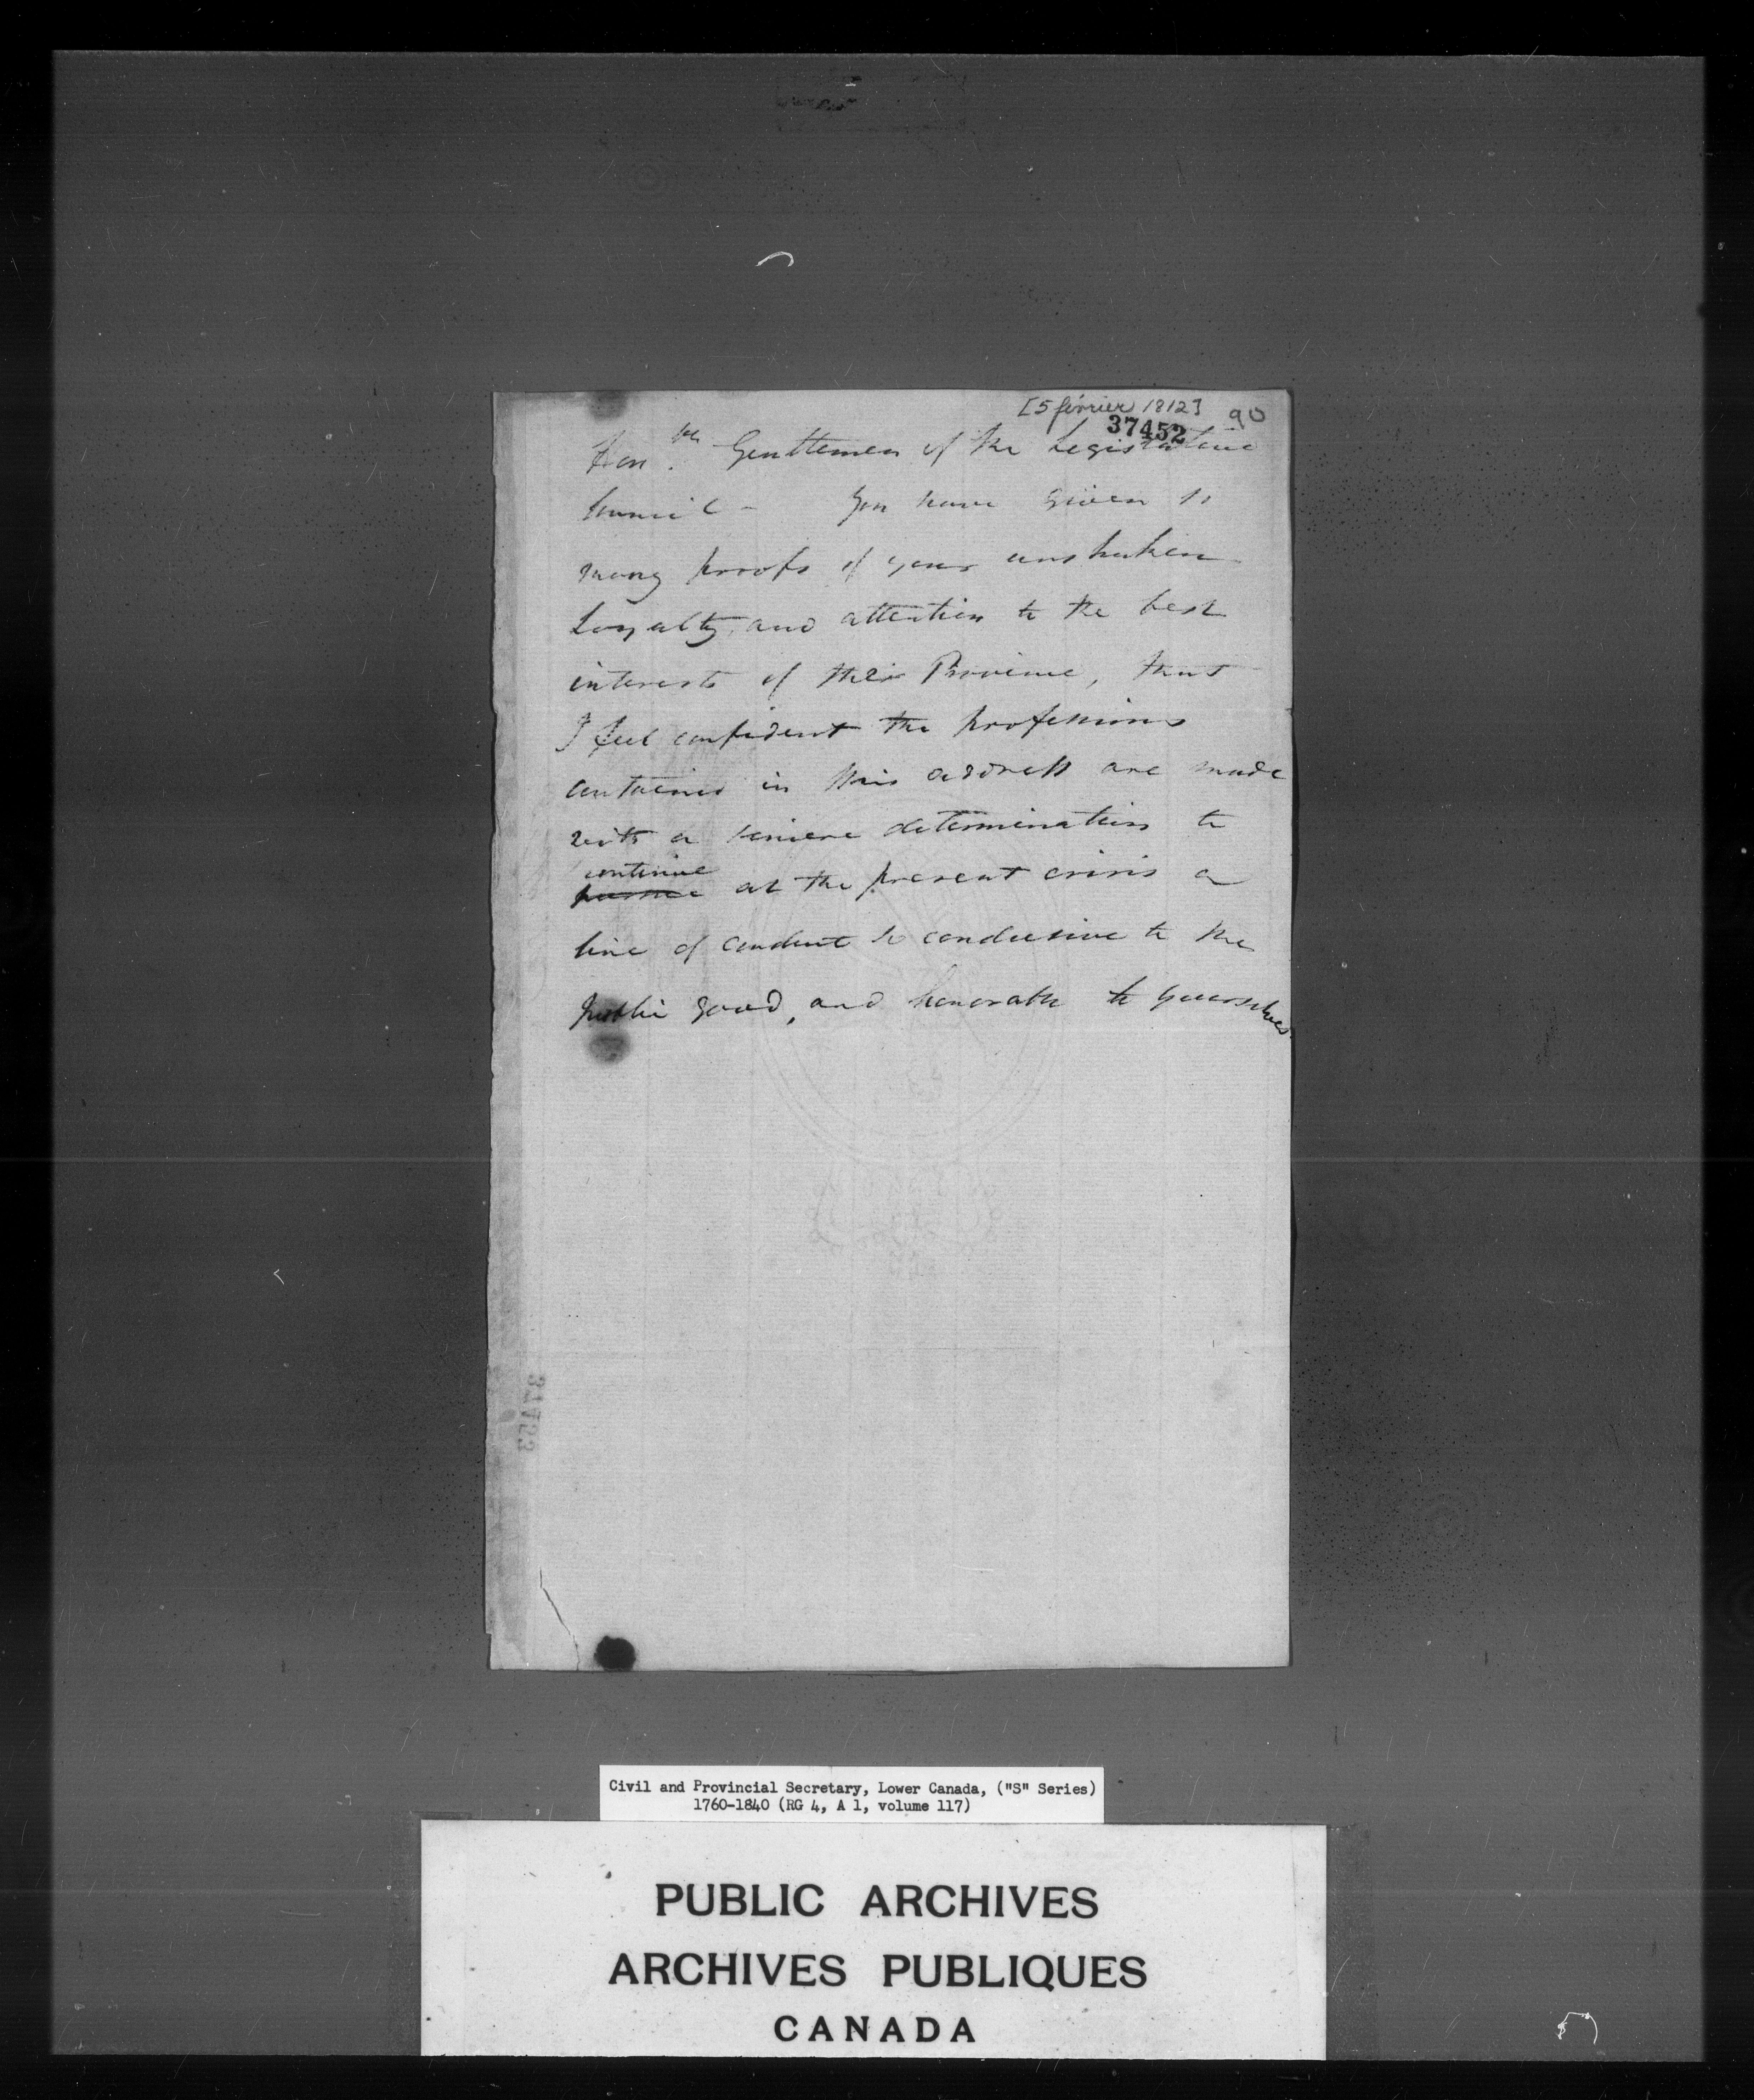 [5 février 1812]
37452
90
Hon.ble Gentlemen of the Legislative
Council - You have given so
many proofs of your unshaken
Loyalty, and attention to the best
interests of this Province, that
I feel confident the professions
contained in this address are made
with a sincere determination to
continue
pursue at the present crisis a
line of conduct so conducive to the
public good, and honorable to yourselves.
37453
Civil and Provincial Secretary, Lower Canada, ("S" Series)
1760-1840 (RG 4, A 1, volume 117)
PUBLIC ARCHIVES
ARCHIVES PUBLIQUES
CANADA